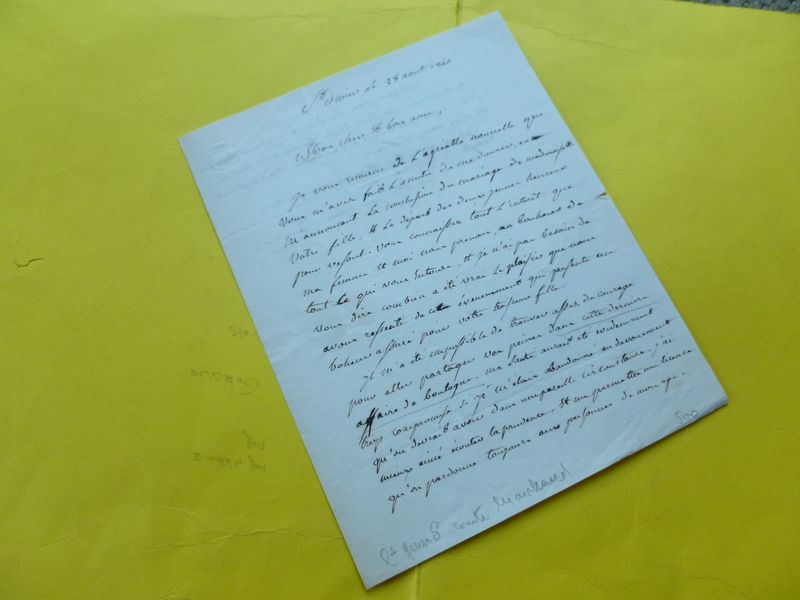 St le 28 aout 1840
Mon cher et bon ami,
Je vous remercie de l'agréable nouvelle que
vous m'avez fait l'amitié de me donner, en
m'annonçant la conclusion du mariage de mademoiselle
votre fille, et le départ des deux jeunes heureux
pour vesoul. vous connaissez tout l'intérêt que
ma femme et moi vous prenons, au bonheur de
tout ce qui vous entoure, et je n'ai pas besoin de
vous dire combien a été vrai le plaisir que nous
avons ressenti de cet évènement qui présente un
bonheur assuré pour votre fille.
Je m'a été impossible de trouver assez de courage
pour aller partager vos peines dans cette dernière
affaire de boulogne, ma santé aurait été évidemment
trop compromise si je m'étais abandonné au dévouement
qu'on devrait avoir dans une pareille circonstance. j'ai
mieux aimé écouter la prudence, et me permettre une licence
qu'on pardonne toujours aux personnes de mon age.
500
comte Marchand